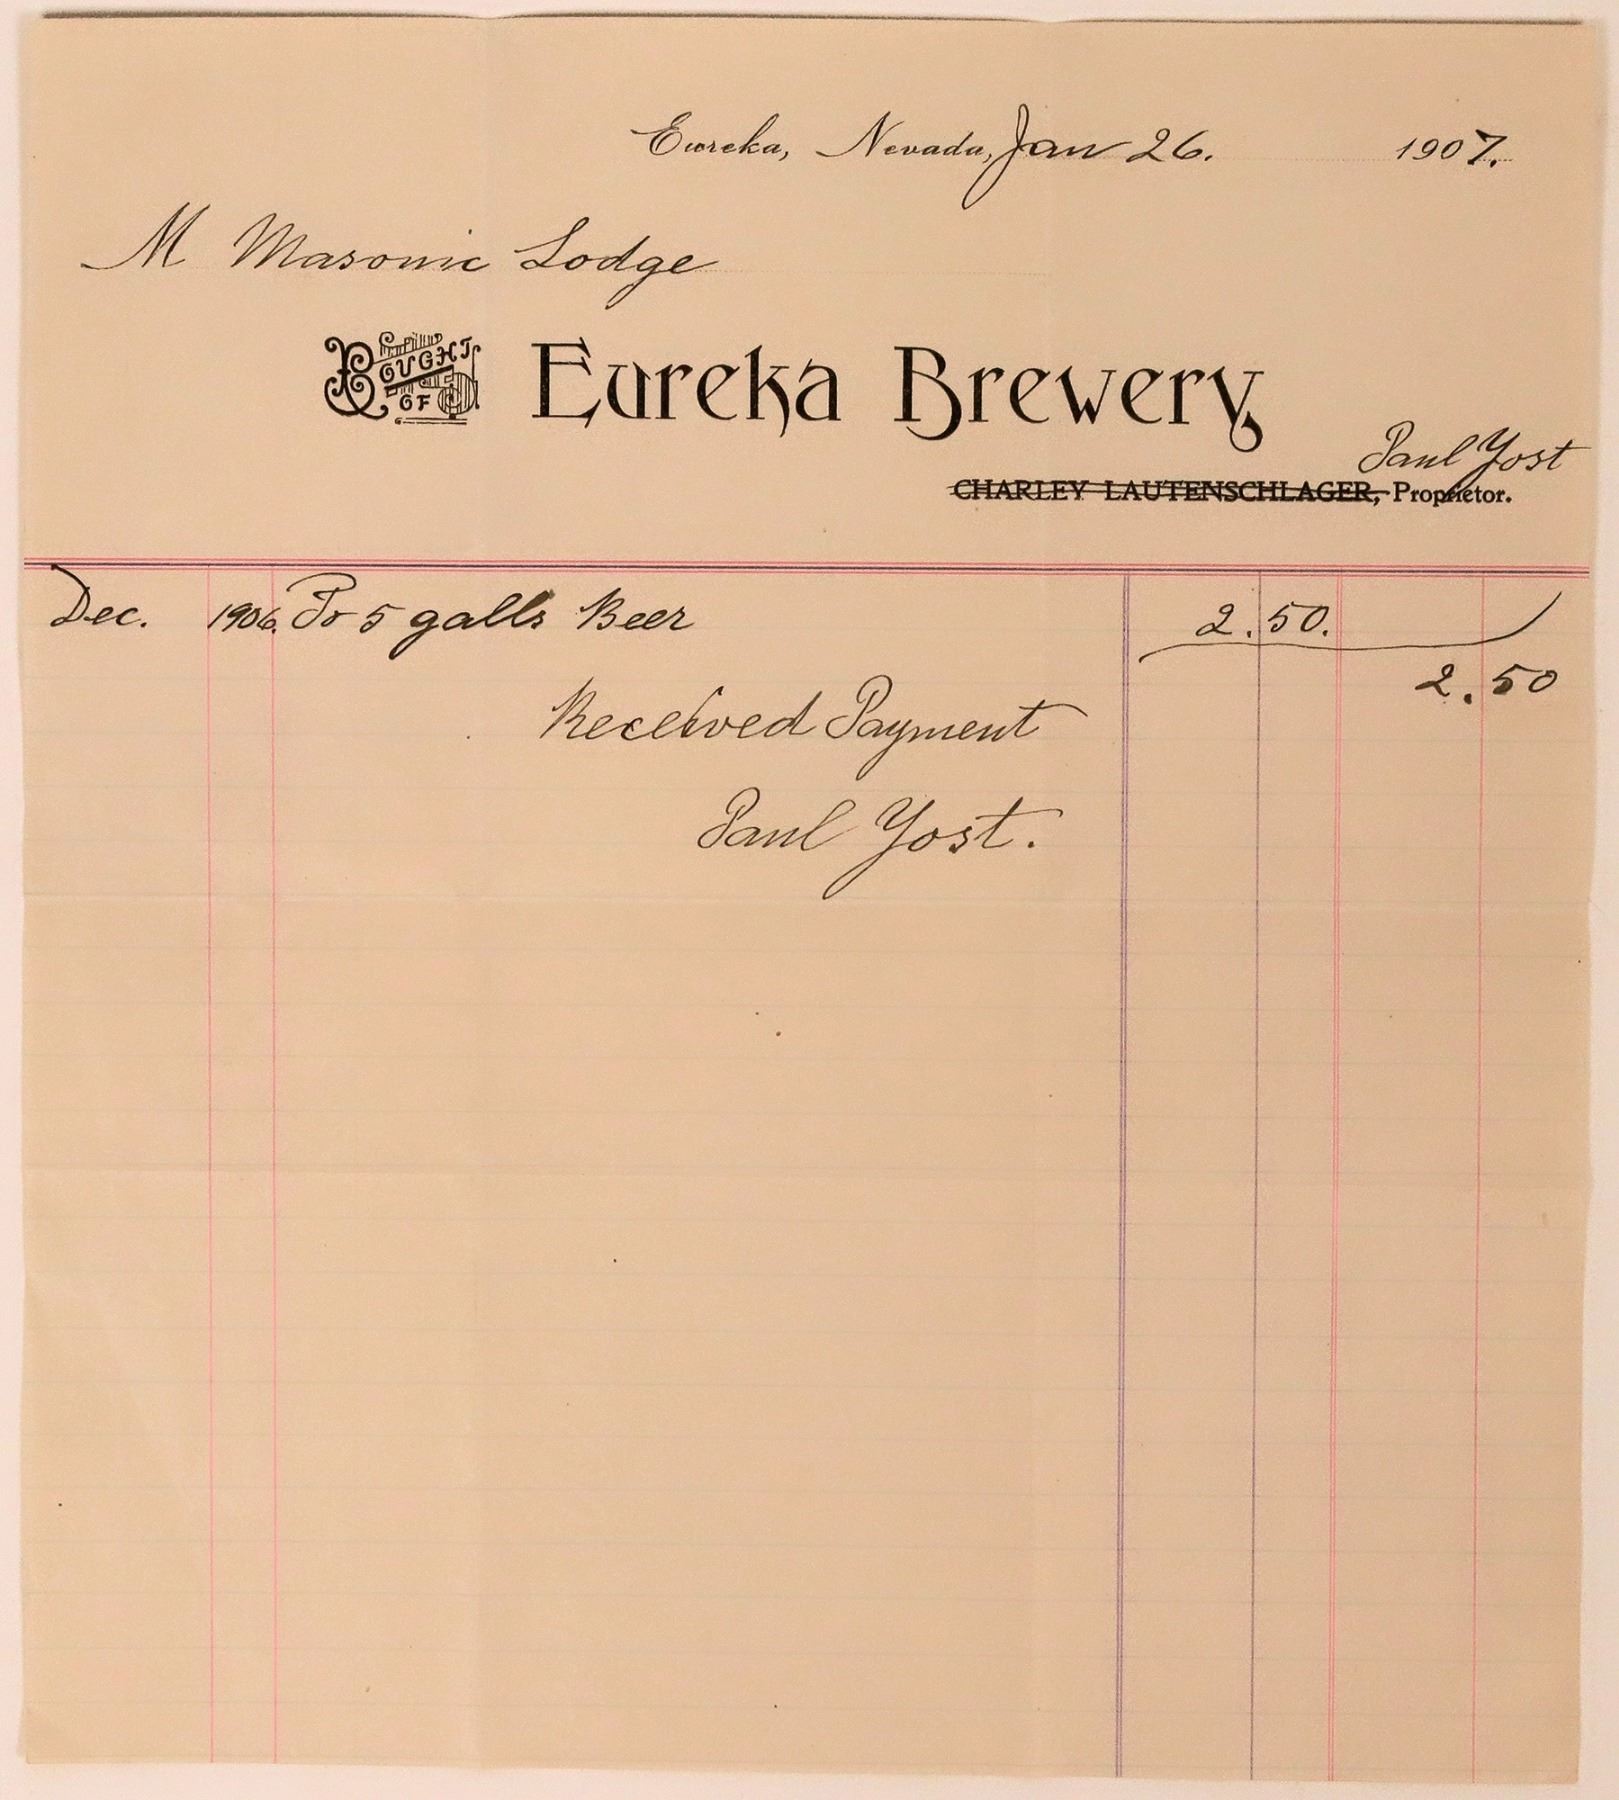 Eureka, Nevada, Jan 26. 1907.
M Masonic Lodge
BOUGHT OF Eureka Brewery,
Paul Yost
CHARLEY LAUTENSCHLAGER, Proprietor.
Dec. 1906. To 5 galls Beer 2.50.
2.50
Received Payment
Paul Yost.